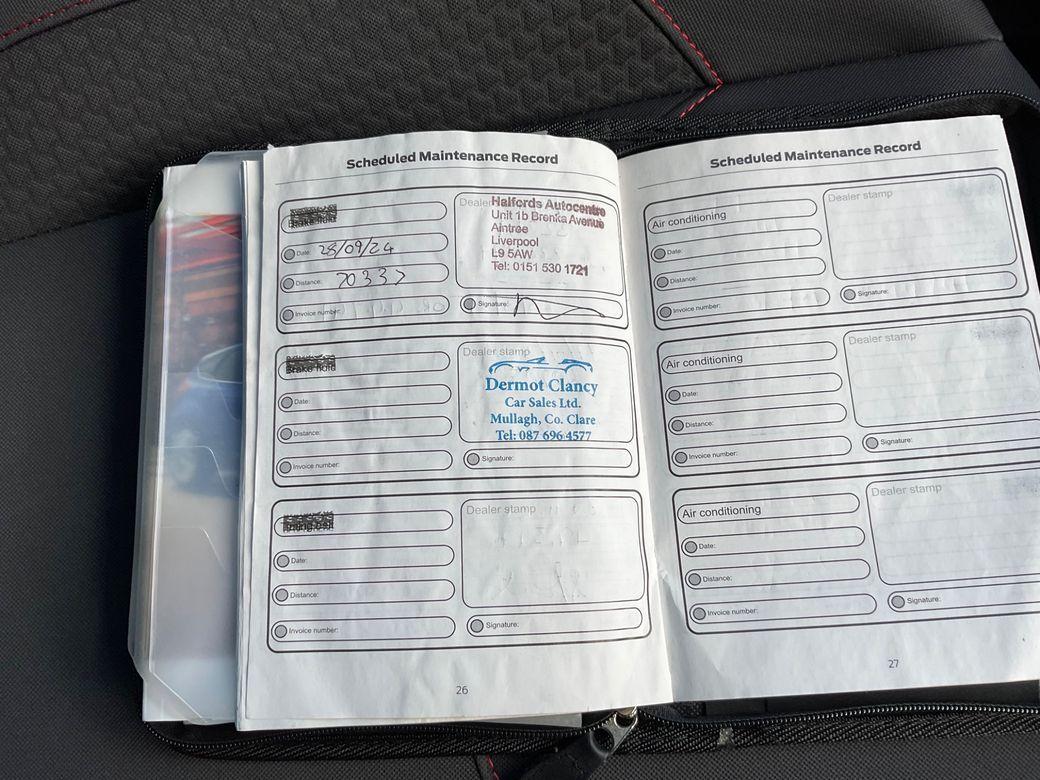 Scheduled Maintenance Record
Brake fluid
Date: 28/09/24
Distance: 70337
Invoice number:
Dealer
Halfords Autocentre
Unit 1b Brenka Avenue
Aintree
Liverpool
L9 5AW
Tel: 0151 530 1721
Signature:
Brake fluid
Date:
Distance:
Invoice number:
Dealer stamp
Dermot Clancy
Car Sales Ltd.
Mullagh, Co. Clare
Tel: 087 696 4577
Signature:
Date:
Distance:
Invoice number:
Dealer stamp
Signature:
26
Scheduled Maintenance Record
Air conditioning
Date:
Distance:
Invoice number:
Dealer stamp
Signature:
Air conditioning
Date:
Distance:
Invoice number:
Dealer stamp
Signature:
Air conditioning
Date:
Distance:
Invoice number:
Dealer stamp
Signature:
27